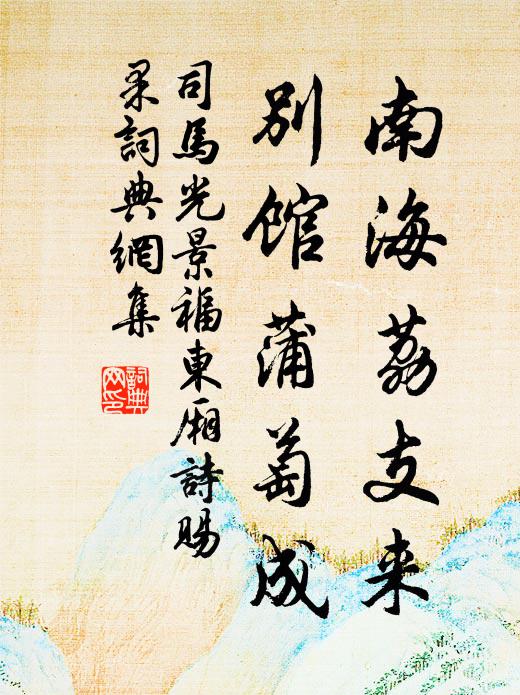 南海荔支来
別館蒲萄成
司馬光景福東廂詩賜
果詞典網集
詞典
网印